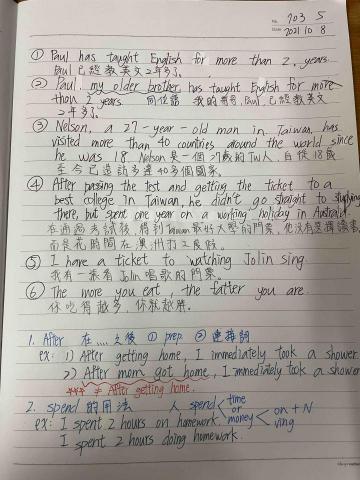 No. 703 5
Date 2021 10 8
① Paul has taught English for more than 2 years.
Paul 已經教英文2年多了.
② Paul, my older brother has taught English for more
than 2 years. 同位語 我的哥哥, Paul, 已經教英文
2年多了.
③ Nelson, a 27-year-old man in Taiwan, has
visited more than 40 countries around the world since
he was 18. Nelson 是一個27歲的TW人, 自從18歲
至今已造訪多達40多個國家.
④ After passing the test and getting the ticket to a
best college in Taiwan, he didn't go straight to studying
there, but spent one year on a working holiday in Australia.
在通過考試後, 得到Taiwan最好大學的門票, 他沒有選擇讀書
而是花時間在澳洲打工度假.
⑤ I have a ticket to watching Jolin sing.
我有一張看Jolin唱歌的門票.
⑥ The more you eat, the fatter you are.
你吃得越多, 你就越胖.
1. After 在....之後 ① prep. ② 連接詞
ex: 1) After getting home, I immediately took a shower.
2) After mom got home, I immediately took a shower
*** ≠ After getting home.
2. spend 的用法 人 spend time or money on + N Ving
ex: I spent 2 hours on homework.
I spent 2 hours doing homework.